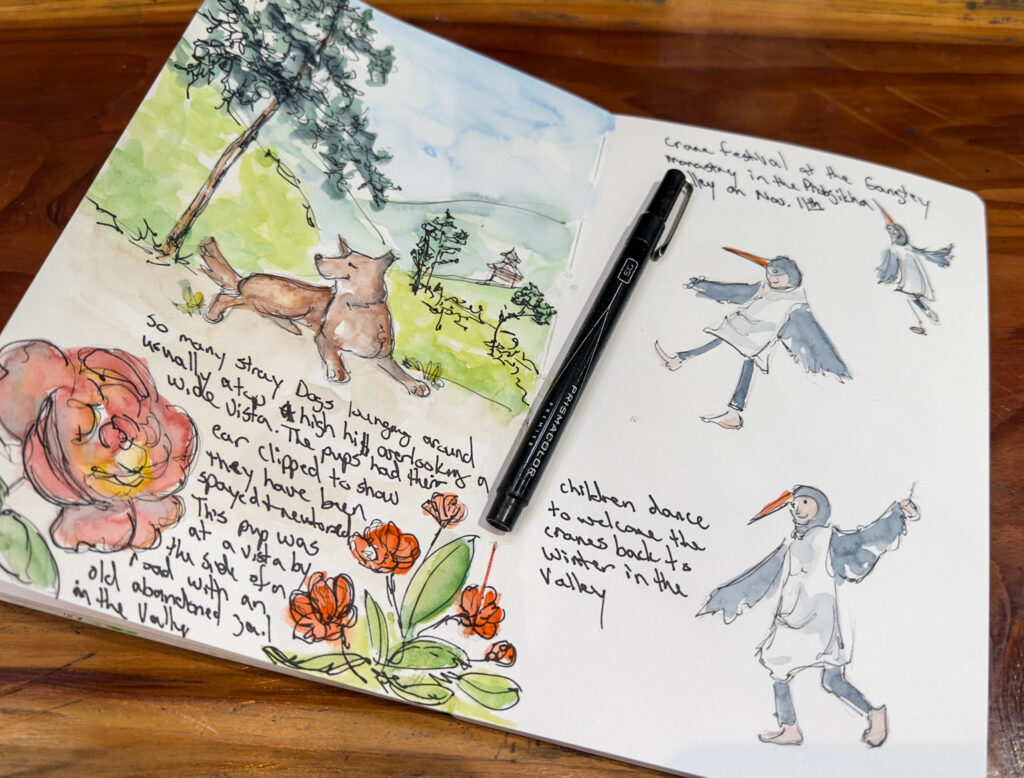 So many stray Dogs lounging around
usually atop high hill overlooking a
wide vista. The pups had their
ear clipped to show
they have been
spayed + neutored
This pup was
at a vista by
the side of a
road with an
old abandoned jail
in the Valley
PRISMACOLOR
PREMIER
03
Crane festival at the Gangtey
monastry in the Phobjikha
Valley on Nov. 11th
children dance
to welcome the
cranes back to
winter in the
Valley